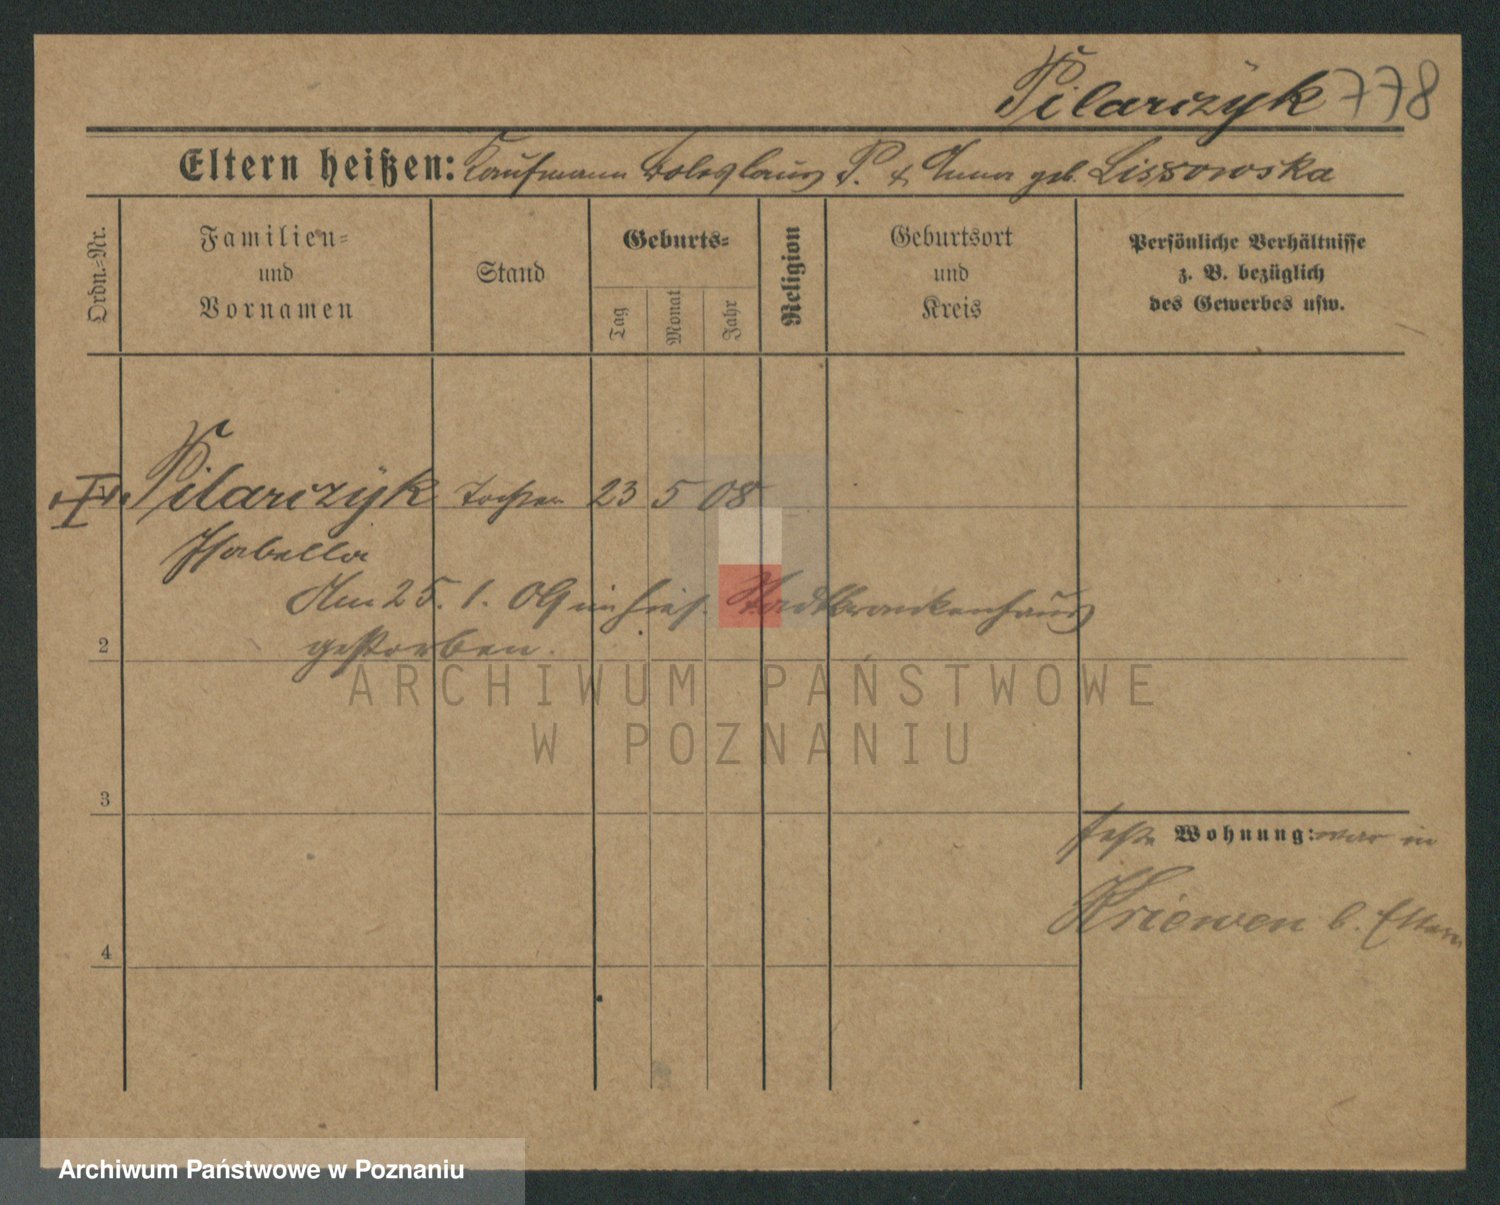 Pilarczyk 778
Eltern heißen: Kaufmann Boleslaus P. & Anna geb. Lissowska
Ordn.-Nr.
Familien-
und
Vornamen
Stand
Geburts-
Tag
Monat
Jahr
Religion
Geburtsort
und
Kreis
Persönliche Verhältnisse
z. B. bezüglich
des Gewerbes usw.
Pilarczyk Tochter 23 5 08
Isabella
Am 25. 1. 09 im hies. Stadtkrankenhaus
gestorben.
2
3
4
feste Wohnung: war in
Kriewen b. Eltern
ARCHIWUM PAŃSTWOWE
W POZNANIU
Archiwum Państwowe w Poznaniu